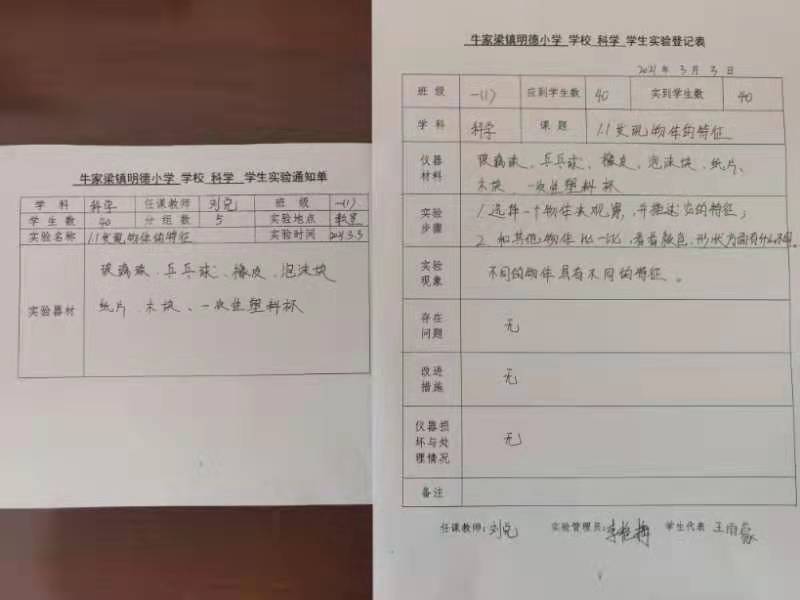 牛家梁镇明德小学 学校 科学 学生实验通知单
学科 科学 任课教师 刘 班级 一(1)
学生数 40 分组数 5 实验地点 教室
实验名称 1.1发现物体的特征 实验时间 2021.3.3
实验器材 玻璃球、乒乓球、橡皮、泡沫块
纸片、木块、一次性塑料杯
牛家梁镇明德小学 学校 科学 学生实验登记表
2021年3月3日
班级 一(1) 应到学生数 40 实到学生数 40
学科 科学 课题 1.1发现物体的特征
仪器材料 玻璃球、乒乓球、橡皮、泡沫块、纸片、
木块、一次性塑料杯
实验步骤 1.选择一个物体去观察,并描述它的特征;
2.和其他物体比一比,看看颜色、形状方面有什么不同。
实验现象 不同的物体具有不同的特征。
存在问题 无
改进措施 无
仪器损坏与处理情况 无
备注
任课教师:刘 实验管理员:李 学生代表 王雨